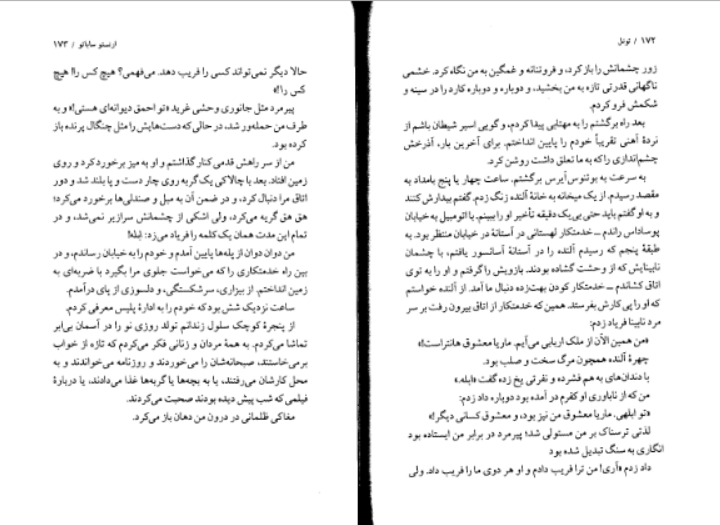 ۱۷۲ / تونل
زور چشمانش را باز کرد، و فروتنانه و غمگین به من نگاه کرد. خشمی
ناگهانی قدرتی تازه به من بخشید، و دوباره و دوباره کارد را در سینه و
شکمش فرو کردم.
بعد راه برگشتم را به مهتابی پیدا کردم، و گویی اسیر شیطان باشم از
نردهٔ آهنی تقریباً خودم را پایین انداختم. برای آخرین بار، آذرخش
چشم‌اندازی را که به ما تعلق داشت روشن کرد.
به سرعت به بوئنوس آیرس برگشتم. ساعت چهار یا پنج بامداد به
مقصد رسیدم. از یک میخانه به خانهٔ آلنده زنگ زدم. گفتم بیدارش کنند
و به او گفتم باید حتی بی یک دقیقه تأخیر او را ببینم. با اتومبیل به خیابان
پوساداس راندم ــ خدمتکار لهستانی در آستانهٔ در خیابان منتظر بود. به
طبقهٔ پنجم که رسیدم آلنده را در آستانهٔ آسانسور یافتم، با چشمان
نابینایش که از وحشت گشاده بودند. بازویش را گرفتم و او را به توی
اتاق کشاندم ــ خدمتکار کودن بهت‌زده دنبال ما آمد. از آلنده خواستم
که او را پی کارش بفرستد. همین که خدمتکار از اتاق بیرون رفت بر سر
مرد نابینا فریاد زدم:
«من همین الآن از ملک اربابی می‌آیم. ماریا معشوق هانتر است!»
چهرهٔ آلنده همچون مرگ سخت و صلب بود.
با دندان‌های به هم فشرده و نفرتی یخ زده گفت «ابله.»
من که از ناباوری او کفرم در آمده بود دوباره داد زدم:
«تو ابلهی. ماریا معشوق من نیز بود، و معشوق کسانی دیگر!»
لذتی ترسناک بر من مستولی شد؛ پیرمرد در برابر من ایستاده بود
انگاری به سنگ تبدیل شده بود
داد زدم «آری! من ترا فریب دادم و او هر دوی ما را فریب داد. ولی
ارنستو ساباتو / ۱۷۳
حالا دیگر نمی‌تواند کسی را فریب دهد. می‌فهمی؟ هیچ کس را! هیچ
کس را!»
پیرمرد مثل جانوری وحشی غرید «تو احمق دیوانه‌ای هستی!» و به
طرف من حمله‌ور شد، در حالی که دست‌هایش را مثل چنگال پرنده باز
کرده بود.
من از سر راهش قدمی کنار گذاشتم و او به میز برخورد کرد و روی
زمین افتاد. بعد با چالاکی یک گربه روی چار دست و پا بلند شد و دور
اتاق مرا دنبال کرد، و در ضمن آن به مبل و صندلی‌ها برخورد می‌کرد؛
هق هق گریه می‌کرد، ولی اشکی از چشمانش سرازیر نمی‌شد، و در
تمام این مدت همان یک کلمه را فریاد می‌زد: ابله!
من دوان دوان از پله‌ها پایین آمدم و خودم را به خیابان رساندم، و در
بین راه خدمتکاری را که می‌خواست جلوی مرا بگیرد با ضربه‌ای به
زمین انداختم. از بیزاری، سرشکستگی، و دلسوزی از پای درآمدم.
ساعت نزدیک شش بود که خودم را به ادارهٔ پلیس معرفی کردم.
از پنجرهٔ کوچک سلول زندانم تولد روزی نو را در آسمان بی‌ابر
تماشا می‌کردم. به همهٔ مردان و زنانی فکر می‌کردم که تازه از خواب
برمی‌خاستند، صبحانه‌شان را می‌خوردند و روزنامه می‌خواندند و به
محل کارشان می‌رفتند، یا به بچه‌ها یا گربه‌ها غذا می‌دادند، یا دربارهٔ
فیلمی که شب پیش دیده بودند صحبت می‌کردند.
مغاکی ظلمانی در درون من دهان باز می‌کرد.